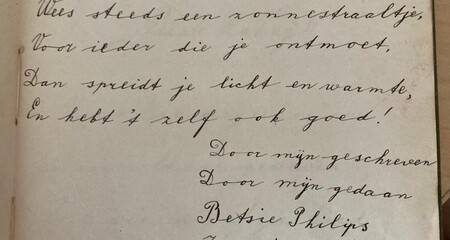 Wees steeds een zonnestraaltje,
Voor ieder die je ontmoet,
Dan spreidt je licht en warmte,
En hebt 't zelf ook goed!
Door mijn geschreven
Door mijn gedaan
Betsie Philips